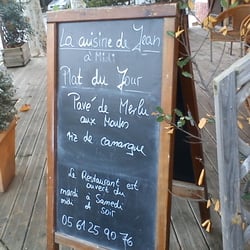 La cuisine de Jean
à Midi
Plat du Jour
Pavé de Merlu
aux Moules
riz de camargue
Le Restaurant est
ouvert du
mardi à Samedi
midi et soir
05 61 25 90 76